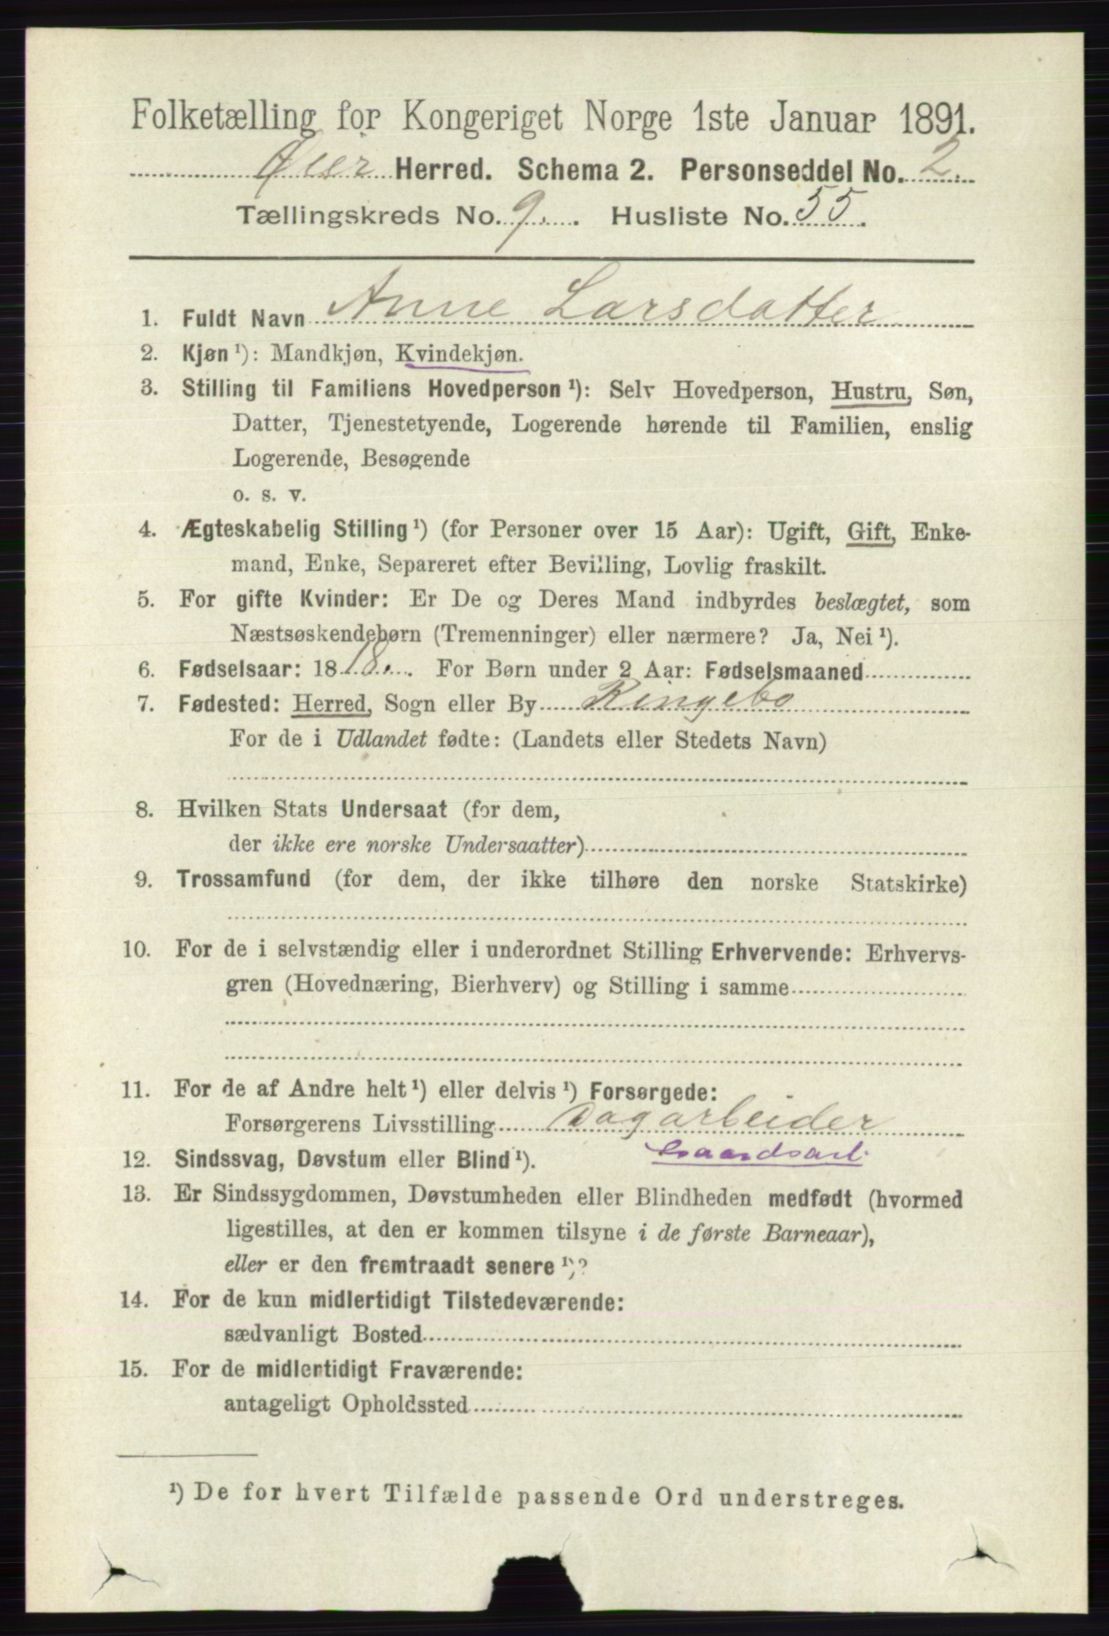 Folketælling for Kongeriget Norge 1ste Januar 1891.
Øier Herred. Schema 2. Personseddel No. 2.
Tællingskreds No. 9. Husliste No. 55.
1. Fuldt Navn Anne Larsdatter
2. Kjøn ¹): Mandkjøn, Kvindekjøn.
3. Stilling til Familiens Hovedperson ¹): Selv Hovedperson, Hustru, Søn,
Datter, Tjenestetyende, Logerende hørende til Familien, enslig
Logerende, Besøgende
o. s. v.
4. Ægteskabelig Stilling ¹) (for Personer over 15 Aar): Ugift, Gift, Enke-
mand, Enke, Separeret efter Bevilling, Lovlig fraskilt.
5. For gifte Kvinder: Er De og Deres Mand indbyrdes beslægtet, som
Næstsøskendebørn (Tremenninger) eller nærmere? Ja, Nei ¹).
6. Fødselsaar: 1818. For Børn under 2 Aar: Fødselsmaaned
7. Fødested: Herred, Sogn eller By Ringebo
For de i Udlandet fødte: (Landets eller Stedets Navn)
8. Hvilken Stats Undersaat (for dem,
der ikke ere norske Undersaatter)
9. Trossamfund (for dem, der ikke tilhøre den norske Statskirke)
10. For de i selvstændig eller i underordnet Stilling Erhvervende: Erhvervs-
gren (Hovednæring, Bierhverv) og Stilling i samme
11. For de af Andre helt ¹) eller delvis ¹) Forsørgede:
Forsørgerens Livsstilling Dagarbeider
12. Sindssvag, Døvstum eller Blind ¹). Gaardsarb.
13. Er Sindssygdommen, Døvstumheden eller Blindheden medfødt (hvormed
ligestilles, at den er kommen tilsyne i de første Barneaar),
eller er den fremtraadt senere ¹)?
14. For de kun midlertidigt Tilstedeværende:
sædvanligt Bosted
15. For de midlertidigt Fraværende:
antageligt Opholdssted
¹) De for hvert Tilfælde passende Ord understreges.